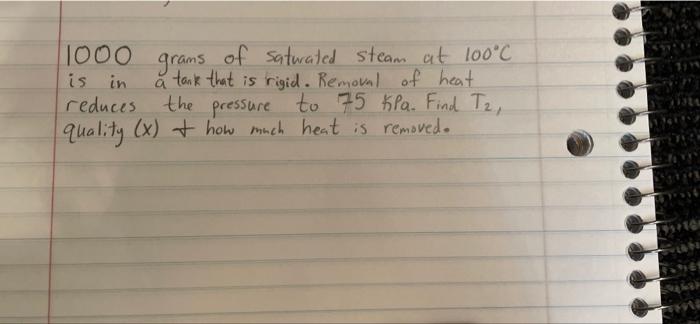 1000 grams of saturated steam at 100°C
is in a tank that is rigid. Removal of heat
reduces the pressure to 75 kPa. Find T2,
quality (x) + how much heat is removed.